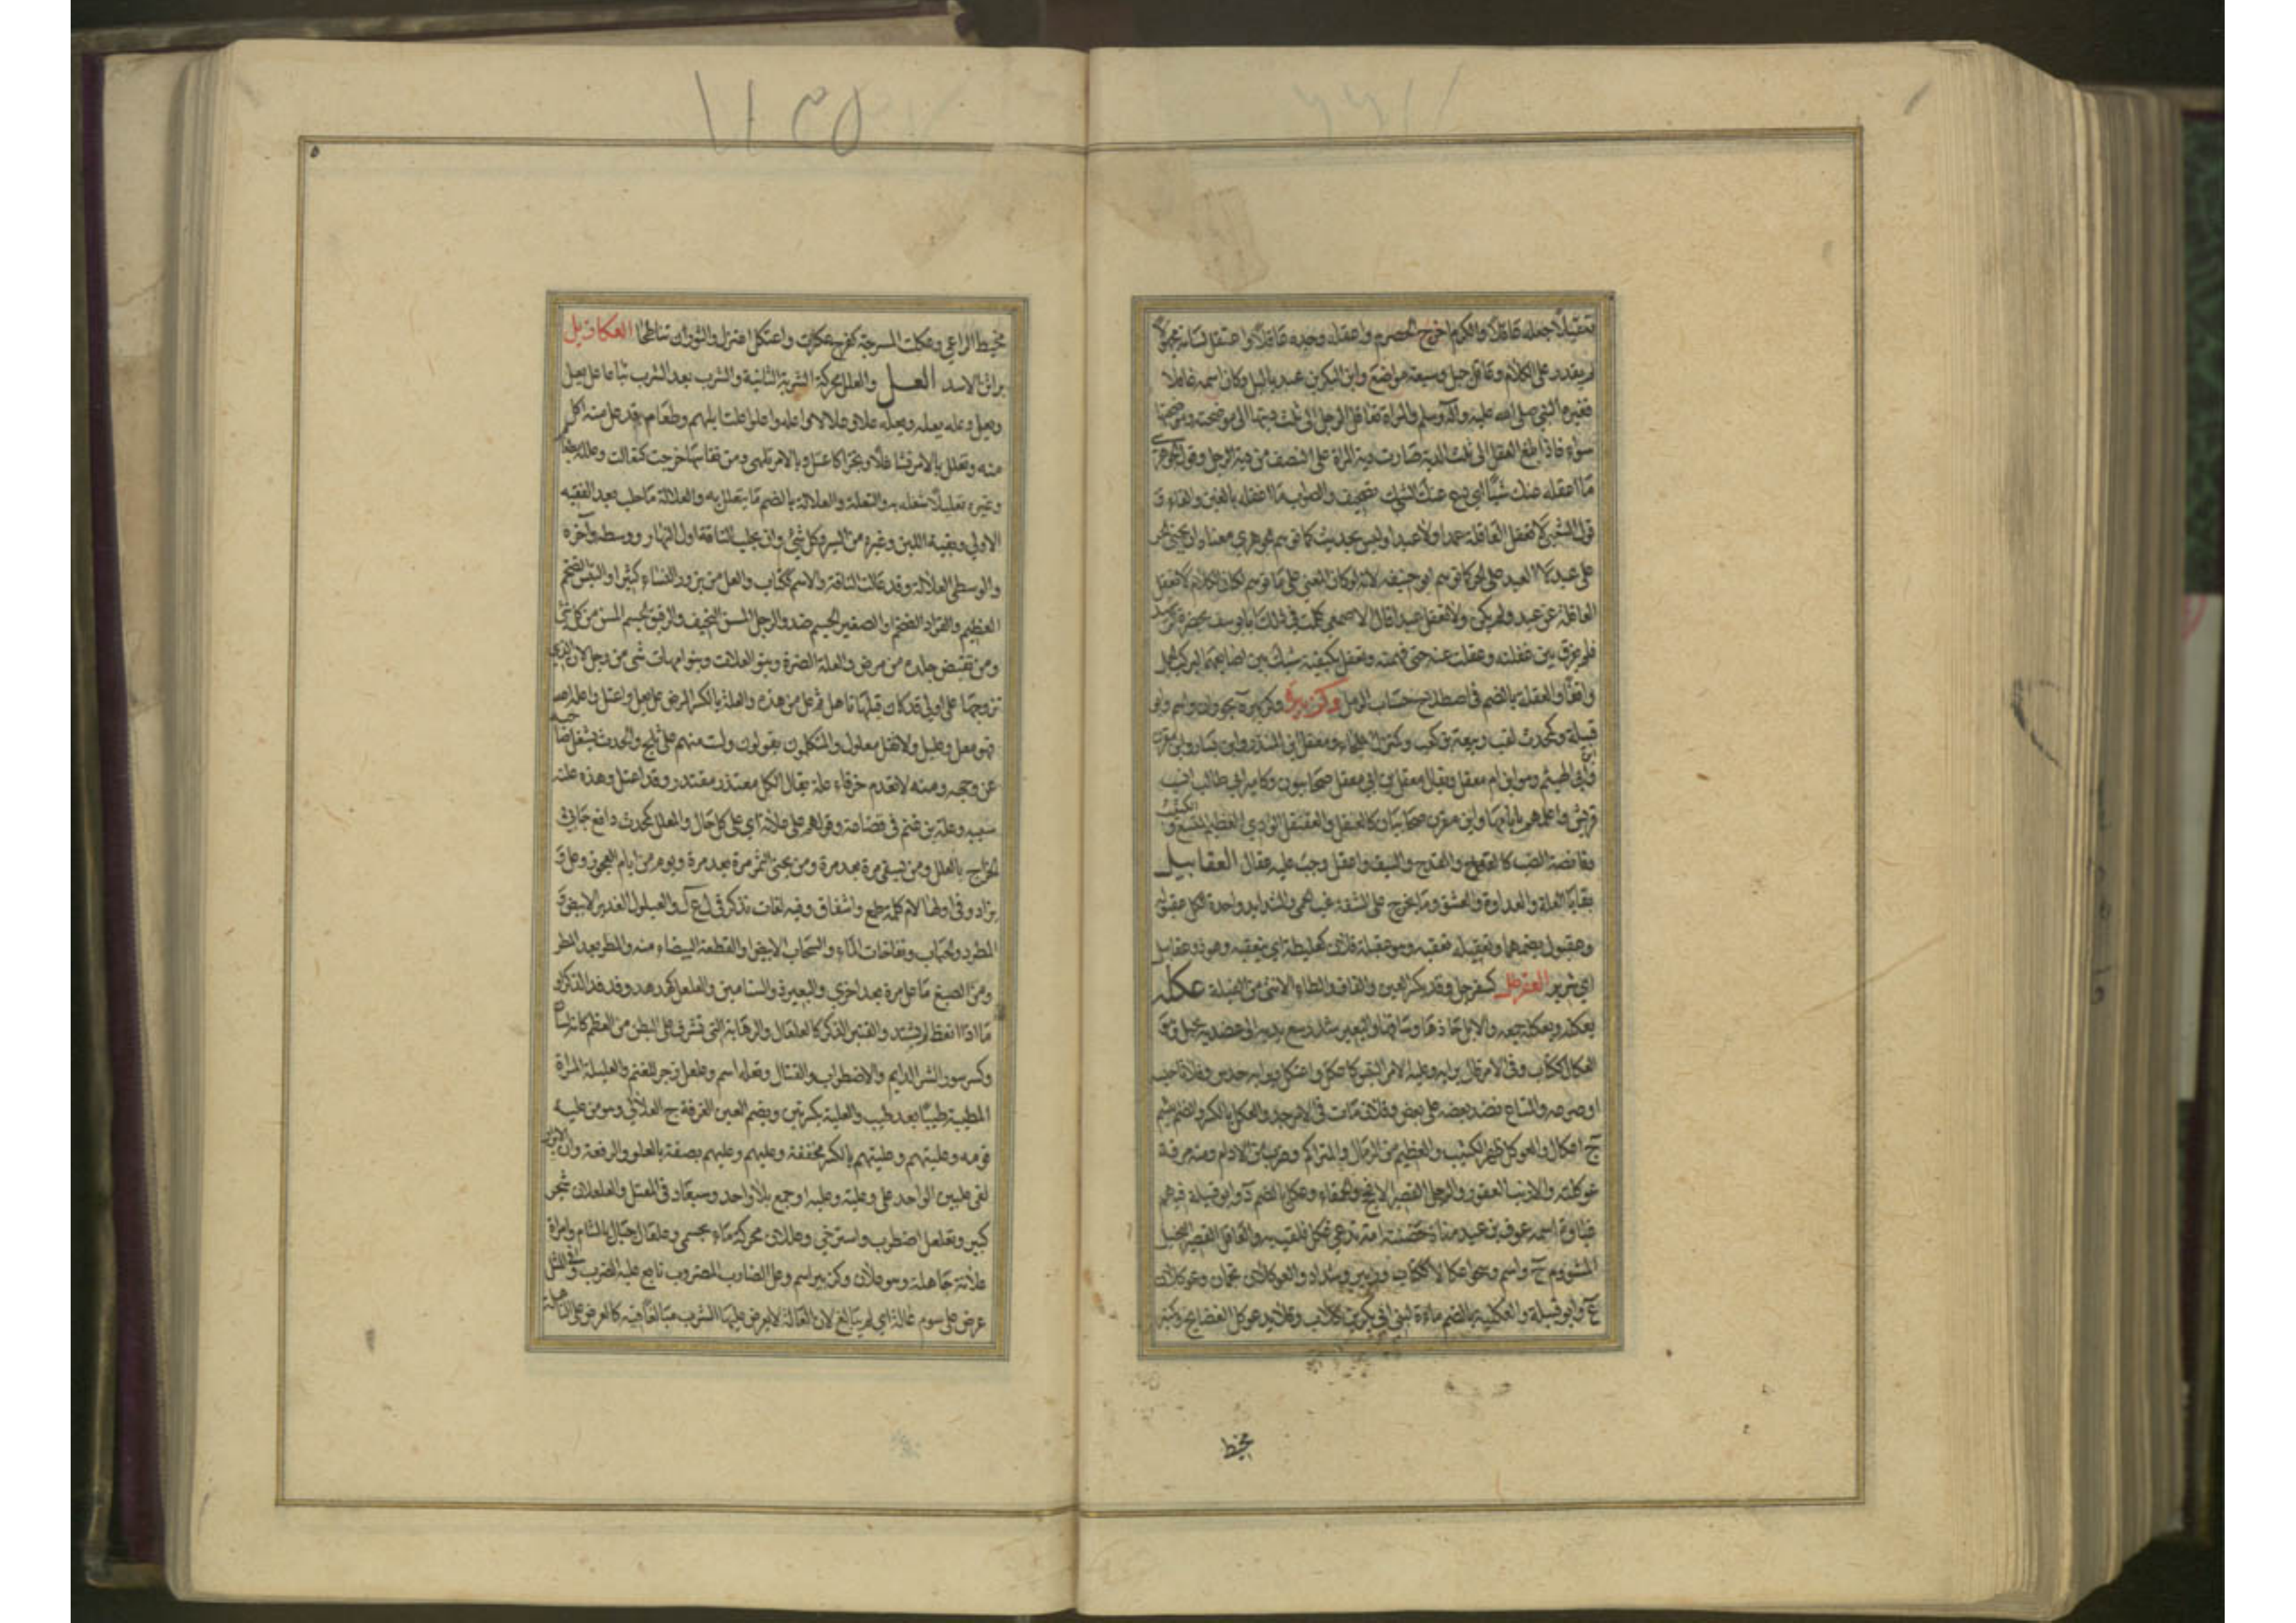 تعقيلا جعله عاقلا والكرم اخرج الحصرم واعقله وجده عاقلا واعتقل لسانه مجهولا
لم يقدر على الكلام وعاقل جبل وسبعة مواضع وابن البكير بن عبد ياليل وكان اسمه غافلا
فغيره النبي صلى الله عليه وآله وسلم والمراة تعاقل الرجل الى ثلث ديتها اي موضحته وموضحتها
سواء فاذا بلغ العقل الى ثلث الدية صارت دية المراة على النصف من دية الرجل وقول الجوهري
ما اعقله عنك شيئا اي دع عنك الشك تصحيف والصواب ما اغفله بالغين والفاء و
قول الشعبي لا تعقل العاقلة عمدا ولا عبدا وليس بحديث كما توهم الجوهري معناه ان يجني الحر
على عبد لا العبد على الحر كما توهم ابو حنيفه لانه لو كان المعنى على ما توهم لكان الكلام لا تعقل
العاقلة عن عبد ولم يكن ولا تعقل عبدا قال الاصمعي كلمت في ذلك ابا يوسف بحضرة الرشيد
فلم يفرق بين عقلته وعقلت عنه حتى فهمته وتعقل بكفيه شبك بين اصابعهما ليركب الجمل
واقفا والعقلة بالضم في اصطلاح حساب الرمل
قبيلة وكمحدث لقب ربيعة بن كعب وكمنزل الملجاء ومعقل بن المنذر وابن يسار وابن مقرن
وابن ابي الهيثم وهو ابن ام معقل ويقال معقل بن ابي معقل صحابيون وكامير ابن ابي طالب انسب
قريش واعلمهم بايامها وابن مقرن صحابيان والعقنقل الوادي العظيم المتسع والكثيب
وقانصة الضب والقدح والسيف واعقل وجب عليه عقال العقابيل
بقايا العلة والعداوة والعشق وما يخرج على الشفة غب الحمى والشدايد واحدة الكل عقبولة
وعقبول بضمهما وتعقبله تعقبه وهو ذو عقابيل
اي شرير العقرطل كسفرجل وقد يكسر العين والقاف والطاء الانثى من الفيلة عكله
يعكله ويعكله جمعه والابل حازها وساقها والبعير شد رسغ يديه الى عضديه بحبل وهو
العكال ككتاب وفي الامر قال برايه وعليه الامر التبس كاعكل واعتكل وبرايه حدس وفلانا حبسه
او صرعه والمتاع نضد بعضه على بعض وفلان مات وفي الامر جد والعكل بالكسر والضم اللئيم
ج اعكال والعوكل ظهر الكثيب والعظيم من الرمال والمتراكم وضرب من الادام ومنه مرقة
عوكلية والارنب العقور والرجل القصير الافحج والحمقاء وعكل بالضم د وابو قبيلة فيهم
غباوة اسمه عوف بن عبد مناة حضنته امة تدعى عكل فلقب به والعاكل القصير البخيل
المشوم ج واسم وعكلان
ع وابو قبيلة والعكلية بالضم ماءة لبني ابي بكر بن كلاب
مخيط
مخيط الراعي وعكلت المسرجة كفرح عكرت واعتكل اعتزل والثوران تناطحا العكازيل
براثن الاسد العل والعلل محركة الشربة الثانية والشرب بعد الشرب تباعا عل يعل
ويعل وعله يعله ويعله علا وعللا واعله واعلوا علت ابلهم وطعام قد عل منه اكل
منه وتعلل بالامر تشاغل او تجزا كاعتل وبالامر تلهى ومن نفاسها خرجت كتعالت وعلله بطعام
وغيره تعليلا شغله به والتعلة والعلالة بالضم ما يتعلل به والعلالة ما حلب بعد الفيقة
الاولى وبقية اللبن وغيره من السير وكل شئ وان يحلب الناقة اول النهار ووسطه وآخره
والوسطى العلالة وقد عالت الناقة والاسم ككتاب والعل من يزور النساء كثيرا والتيس الضخم
العظيم والقراد الضخم او الصغير الجسم ضد والرجل المسن النحيف والرقيق الجسم المسن من كل شئ
ومن تقبض جلده من مرض والعلة الضرة وبنو العلات وبنو امهات شتى من رجل لان الذي
تزوجها على اولى قد كانت قبلها ناهل ثم عل من هذه والعلة بالكسر المرض عل يعل واعتل واعله الله
فهو معل وعليل ولا تقل معلول والمتكلمون يقولونه ولست منهم على ثلج والحدث يشغل صاحبه
عن وجهه ومنه لا تعدم خرقاء علة يقال لكل معتذر مقتدر وقد اعتل وهذه علته
سببه وعلة بن غنم في قضاعة وقولهم على علاته اي على كل حال والمعلل كمحدث دافع جابي
الخراج بالعلل ومن يسقي مرة بعد مرة ومن يجني الثمر مرة بعد مرة ويوم من ايام العجوز وعل و
يزاد في اولها لام كلمة طمع واشفاق وفيه لغات تذكر في ل ع ل واليعلول الغدير الابيض و
المطرد والحباب ونفاخات الماء والسحاب الابيض او القطعة البيضاء منه والمطر بعد المطر
ومن الصبغ ما عل مرة بعد اخرى والبعير ذو السنامين والعلعل كهدهد وفدفد الذكر او
ما اذا انعظ لم يشتد والقنبر الذكر كالعلعال والرهابة التي تشرف على البطن من العظم كانه لسان
وكسرسور الشر الدايم والاضطراب والقتال وتعلة اسم وعلعل زجر للغنم والعليلة المراة
المطيبة طيبا بعد طيب والعلية بكسرتين وبضم العين الغرفة ج العلالي وهو من علية
قومه وعليتهم وعليتهم بالكسر مخففة وعليهم وعليهم بصفته بالعلو والرفعة وان الابرار
لفي عليين الواحد علي وعلية وعلية او جمع بلا واحد وسيعاد في المعتل والعلعلان شجر
كبير وتعلعل اضطرب واسترخى وعللان محركة ماء بحسمى وعلعال جبل بالشام وامراة
علانة جاهلة وهو علان وكزبير اسم وعل الضارب المضروب تابع عليه الضرب وفي المثل
عرض علي سوم عالة اي لم يبالغ لان العالة لا يعرض عليها الشرب مبالغا فيه كالعرض على الناهلة